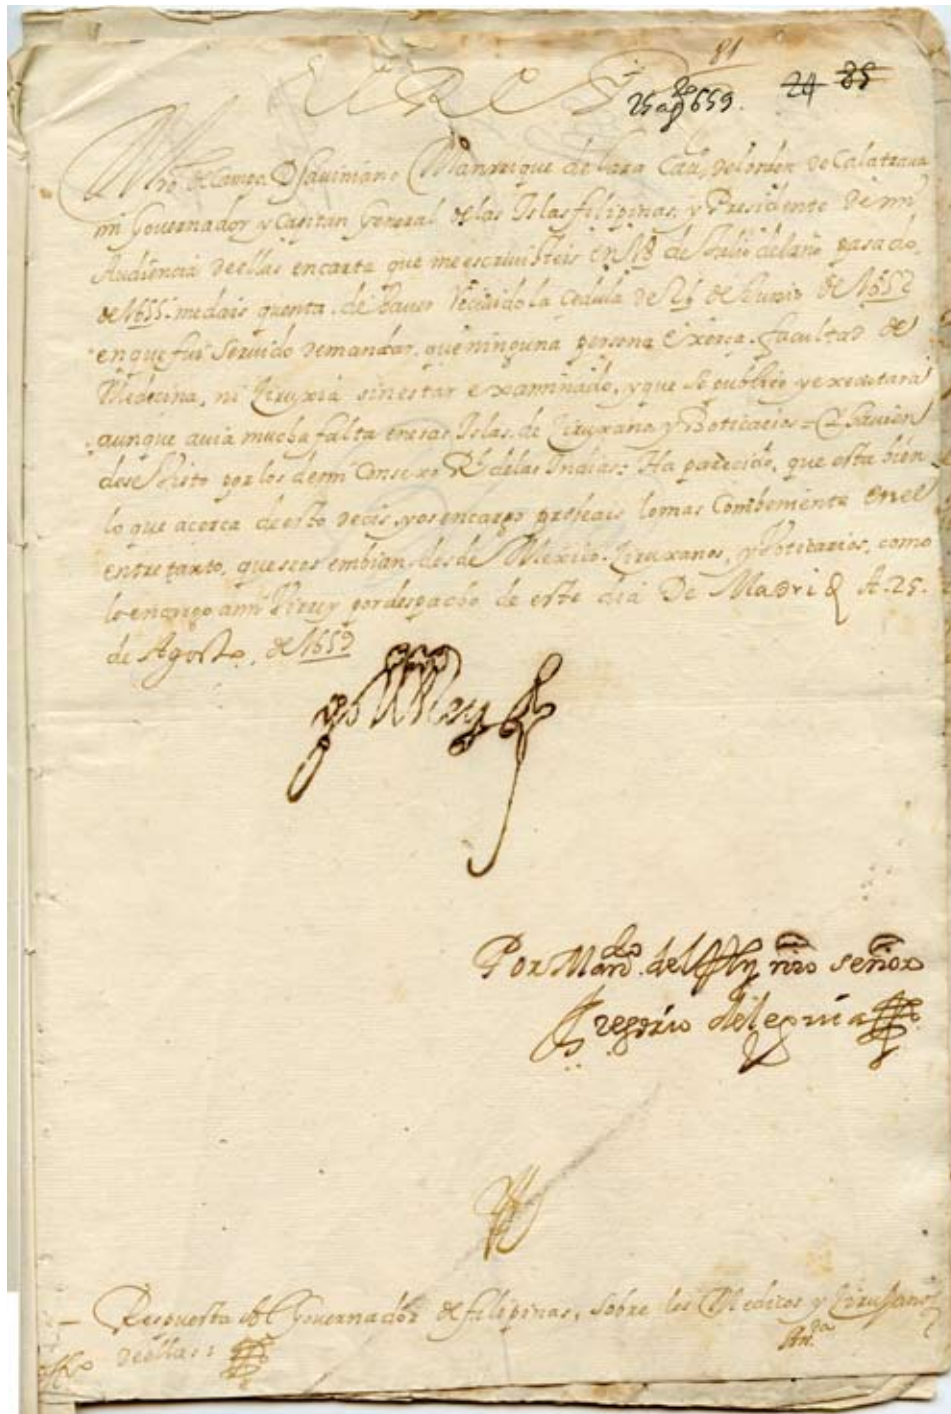 El Rey
81
25 ago 659. 24 85
Mro de Campo D Saviniano Manrique de Lara Cauo del orden de Calatraua
mi Gouernador y Capitan General de las Islas filipinas, y Presidente de mi
Audiencia de ellas en carta que me escriuisteis en 18 de Jullio del año pasado,
de 1655. me dais quenta. de hauer Receuido la Cedula de 26 de Junio de 1652
en que fui seruido de mandar, que ninguna persona exerça. facultad de
Medecina, ni Ziruxia sin estar examinado, y que se publico y executara
aunque auia mucha falta en esas Islas. de Ziruxanos y Boticarios = Y hauien
dose Visto por los de mi Consexo Rl de las Indias: Ha parecido, que esta bien
lo que acerca de esto decis, y os encargo proueais lo mas Combeniente en el
entretanto, que se os embian desde Mexico. Ziruxanos, y Boticarios, como
lo encargo a mi Virrey por despacho de este dia De Madrid A. 25.
de Agosto, de 1659
yo el Rey
Por Mando del Rey nro señor
Gregorio de Leguia
Respuesta al Gouernador de filipinas, sobre los Medicos y Ziruxanos
de ellas: